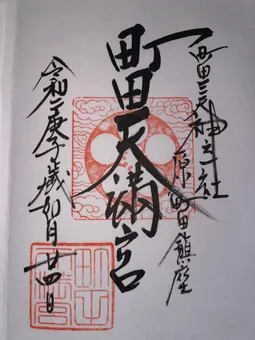 町田三天神之社
原町田鎮座
町田天満宮
令和二庚子歳卯月廿四日